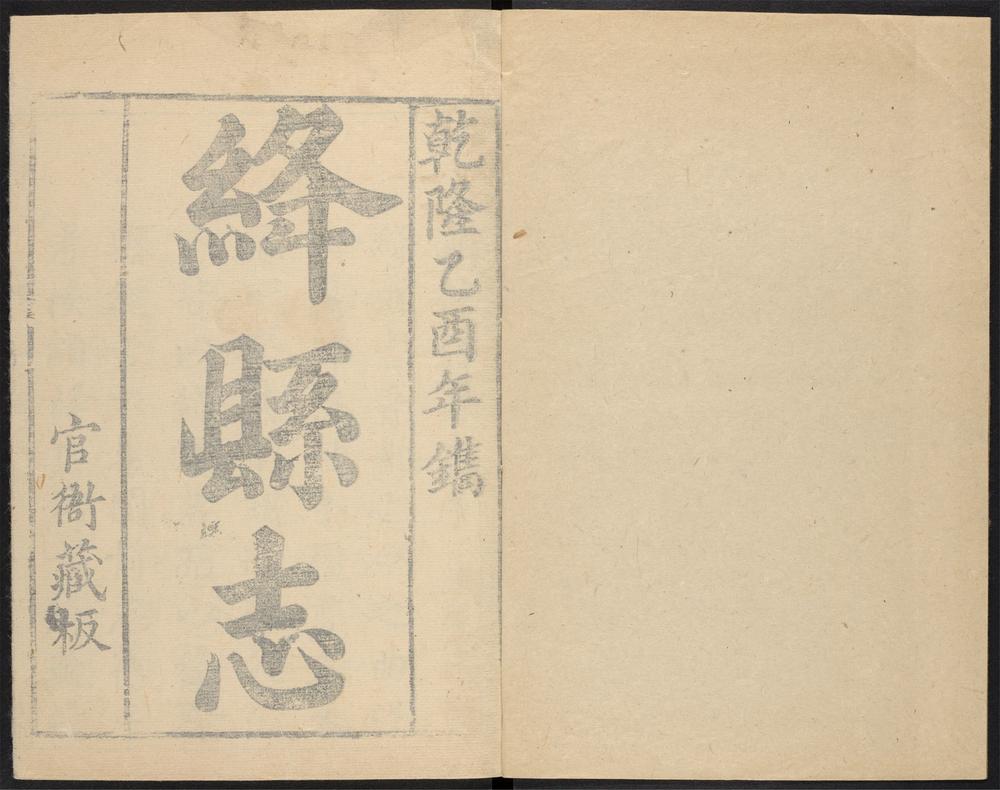 乾隆乙酉年鐫
絳縣志
官衙藏板